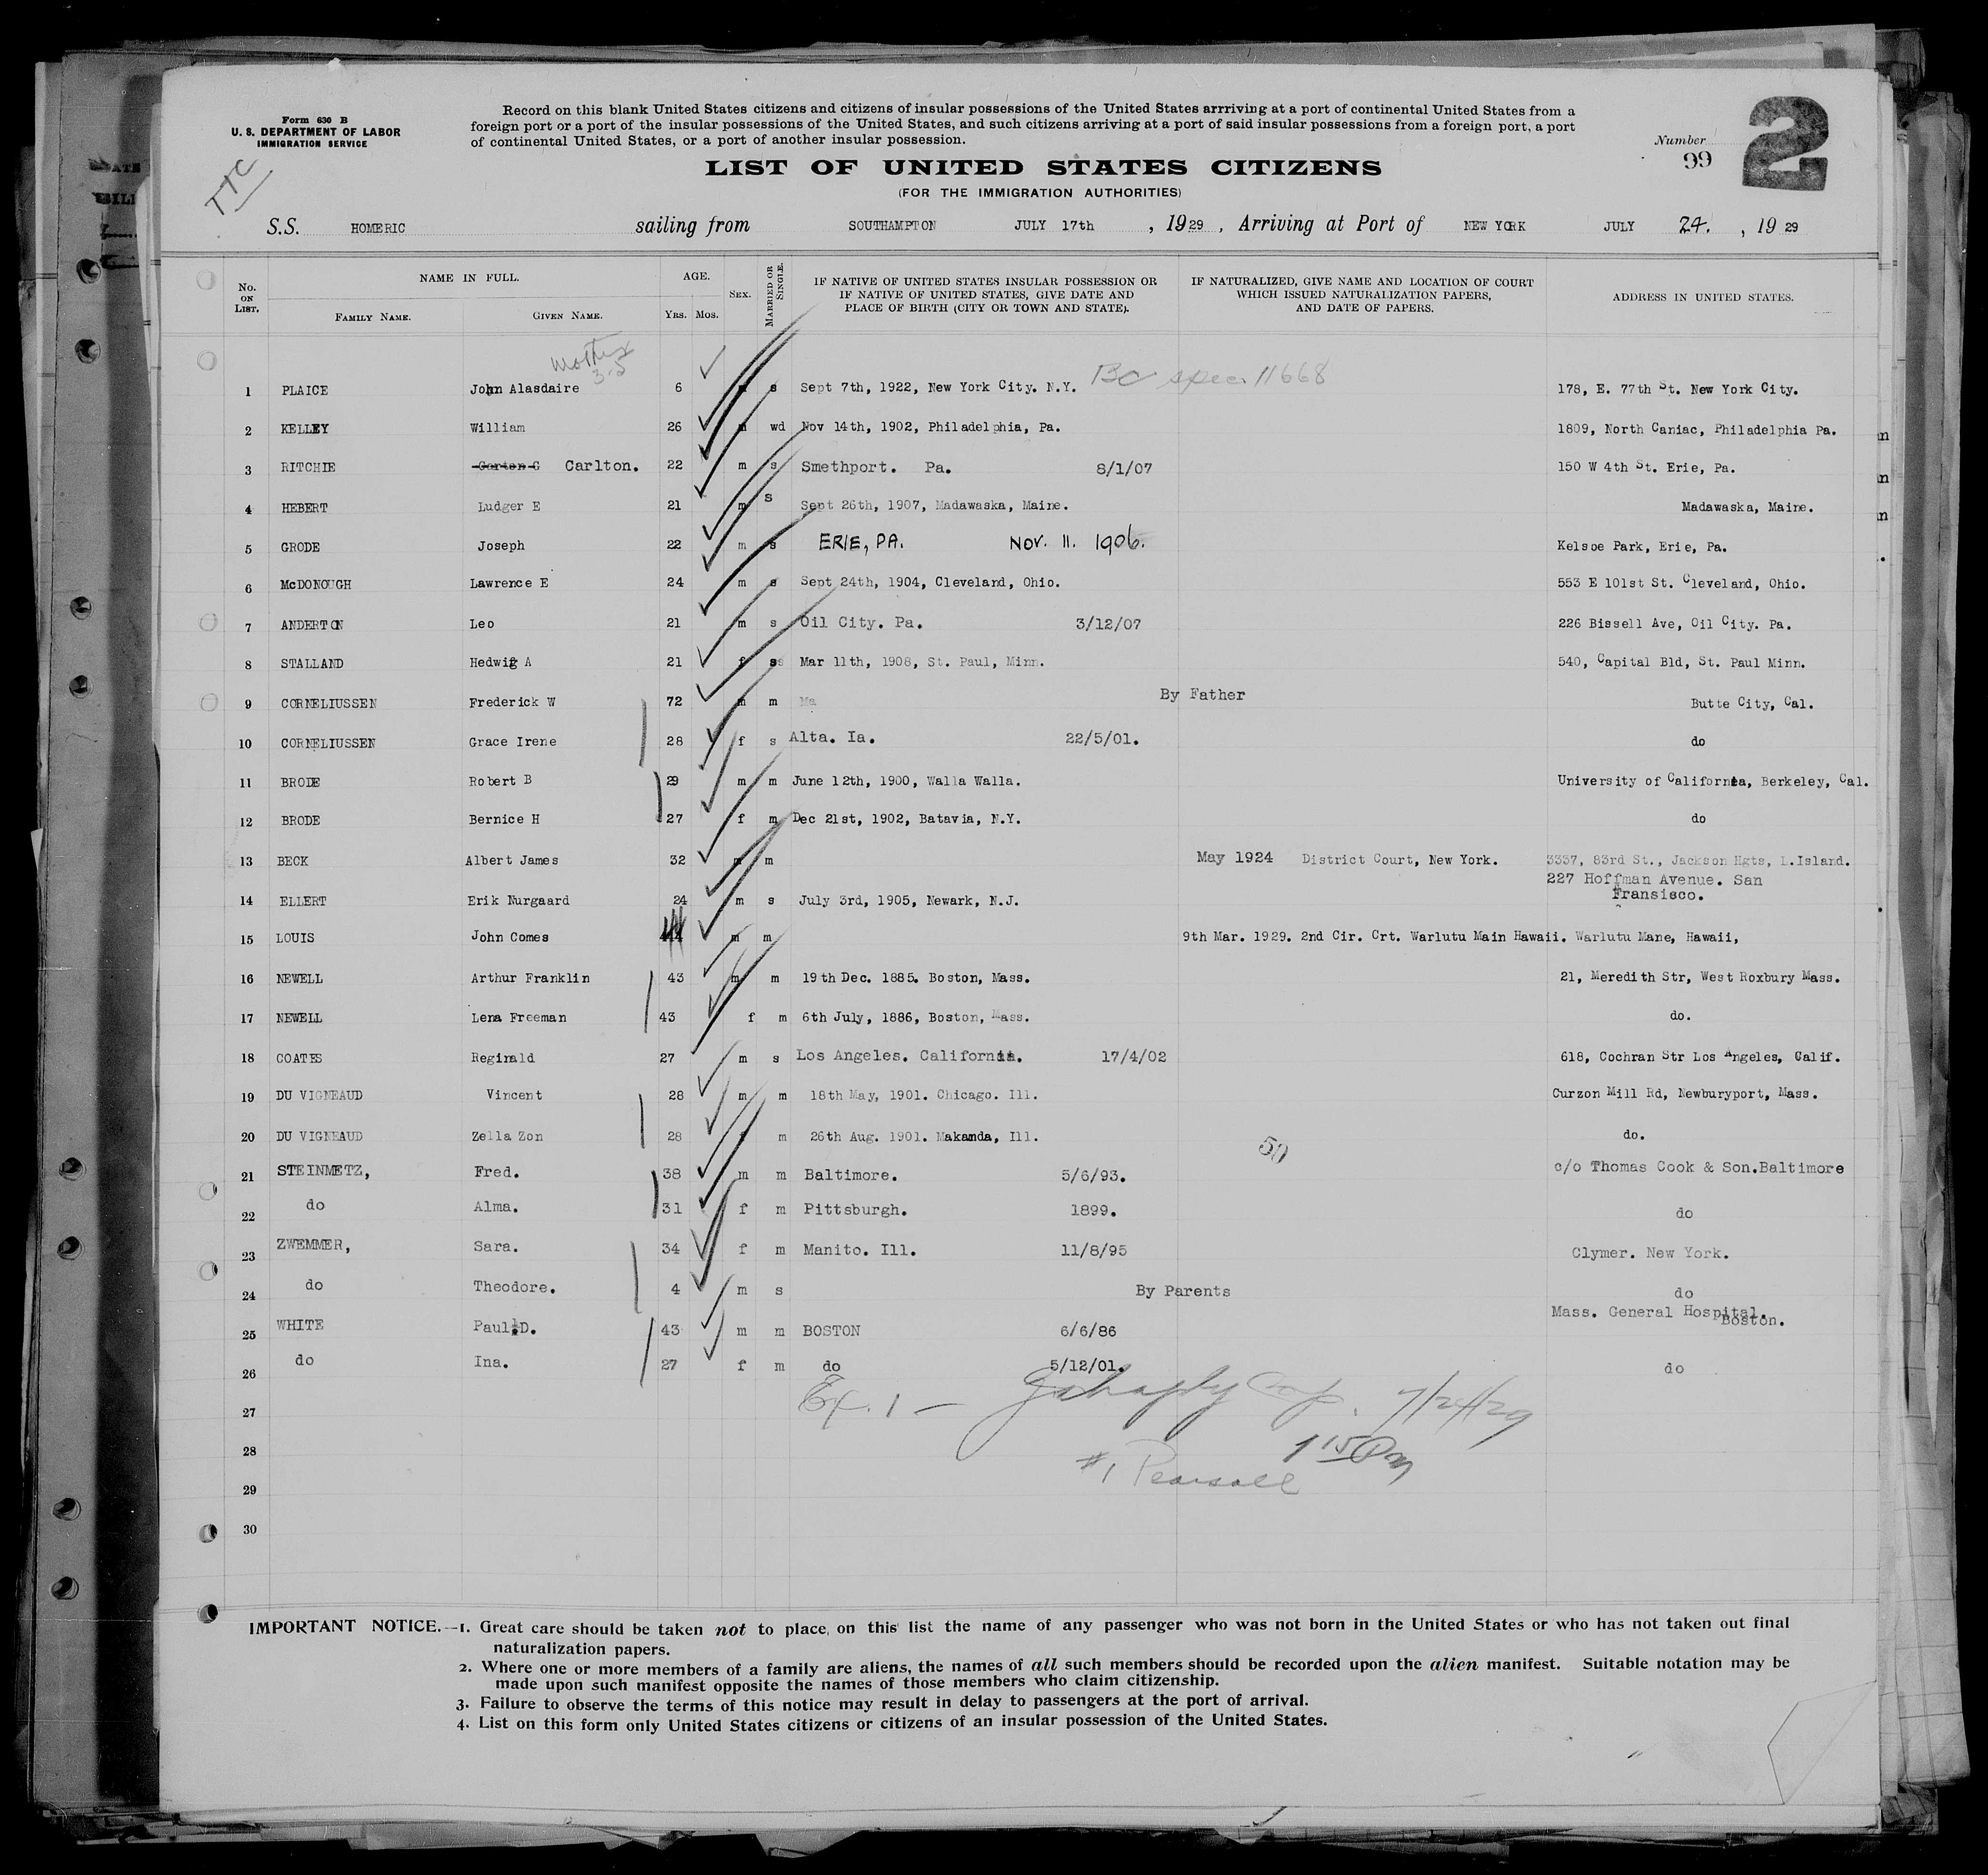 Form 630 B
U. S. DEPARTMENT OF LABOR
IMMIGRATION SERVICE
Record on this blank United States citizens and citizens of insular possessions of the United States arrriving at a port of continental United States from a
foreign port or a port of the insular possessions of the United States, and such citizens arriving at a port of said insular possessions from a foreign port, a port
of continental United States, or a port of another insular possession.
Number
99
2
LIST OF UNITED STATES CITIZENS
(FOR THE IMMIGRATION AUTHORITIES)
S.S. HOMERIC sailing from SOUTHAMPTON JULY 17th , 1929 , Arriving at Port of NEW YORK JULY 24. , 19 29
No. ON LIST. NAME IN FULL. AGE. SEX. MARRIED OR SINGLE. IF NATIVE OF UNITED STATES INSULAR POSSESSION OR IF NATIVE OF UNITED STATES, GIVE DATE AND PLACE OF BIRTH (CITY OR TOWN AND STATE). IF NATURALIZED, GIVE NAME AND LOCATION OF COURT WHICH ISSUED NATURALIZATION PAPERS, AND DATE OF PAPERS. ADDRESS IN UNITED STATES.
FAMILY NAME. GIVEN NAME. YRS. MOS.
Mother
3-5
1 PLAICE John Alasdaire 6 m s Sept 7th, 1922, New York City. N.Y. BC spec 11668 178, E. 77th St. New York City.
2 KELLEY William 26 m wd Nov 14th, 1902, Philadelphia, Pa. 1809, North Caniac, Philadelphia Pa.
3 RITCHIE Carlton. 22 m s Smethport. Pa. 8/1/07 150 W 4th St. Erie, Pa.
4 HEBERT Ludger E 21 m s Sept 26th, 1907, Madawaska, Maine. Madawaska, Maine.
5 GRODE Joseph 22 m s ERIE, PA. NOV. 11. 1906. Kelsoe Park, Erie, Pa.
6 McDONOUGH Lawrence E 24 m s Sept 24th, 1904, Cleveland, Ohio. 553 E 101st St. Cleveland, Ohio.
7 ANDERTON Leo 21 m s Oil City. Pa. 3/12/07 226 Bissell Ave, Oil City. Pa.
8 STALLAND Hedwig A 21 f s Mar 11th, 1908, St. Paul, Minn. 540, Capital Bld, St. Paul Minn.
9 CORNELIUSSEN Frederick W 72 m m Ma By Father Butte City, Cal.
10 CORNELIUSSEN Grace Irene 28 f s Alta. Ia. 22/5/01. do
11 BRODE Robert B 29 m m June 12th, 1900, Walla Walla. University of California, Berkeley, Cal.
12 BRODE Bernice H 27 f m Dec 21st, 1902, Batavia, N.Y. do
13 BECK Albert James 32 m m May 1924 District Court, New York. 3337, 83rd St., Jackson Hgts, L.Island.
14 ELLERT Erik Nurgaard 24 m s July 3rd, 1905, Newark, N.J. 227 Hoffman Avenue. San Fransisco.
15 LOUIS John Comes 44 m m 9th Mar. 1929. 2nd Cir. Crt. Warlutu Main Hawaii. Warlutu Mane, Hawaii,
16 NEWELL Arthur Franklin 43 m m 19th Dec. 1885. Boston, Mass. 21, Meredith Str, West Roxbury Mass.
17 NEWELL Lena Freeman 43 f m 6th July, 1886, Boston, Mass. do.
18 COATES Reginald 27 m s Los Angeles. California. 17/4/02 618, Cochran Str Los Angeles, Calif.
19 DU VIGNEAUD Vincent 28 m m 18th May, 1901. Chicago. Ill. Curzon Mill Rd, Newburyport, Mass.
20 DU VIGNEAUD Zella Zon 28 f m 26th Aug. 1901. Makanda, Ill. do.
50
21 STEINMETZ, Fred. 38 m m Baltimore. 5/6/93. c/o Thomas Cook & Son.Baltimore
22 do Alma. 31 f m Pittsburgh. 1899. do
23 ZWEMMER, Sara. 34 f m Manito. Ill. 11/8/95 Clymer. New York.
24 do Theodore. 4 m s By Parents do
25 WHITE Paul D. 43 m m BOSTON 6/6/86 Mass. General Hospital. Boston.
26 do Ina. 27 f m do 5/12/01. do
27 Ex. 1 — 7/24/29
28 1 15 Pm
#1 Pearsall
29
30
IMPORTANT NOTICE.—1. Great care should be taken not to place on this list the name of any passenger who was not born in the United States or who has not taken out final
naturalization papers.
2. Where one or more members of a family are aliens, the names of all such members should be recorded upon the alien manifest. Suitable notation may be
made upon such manifest opposite the names of those members who claim citizenship.
3. Failure to observe the terms of this notice may result in delay to passengers at the port of arrival.
4. List on this form only United States citizens or citizens of an insular possession of the United States.